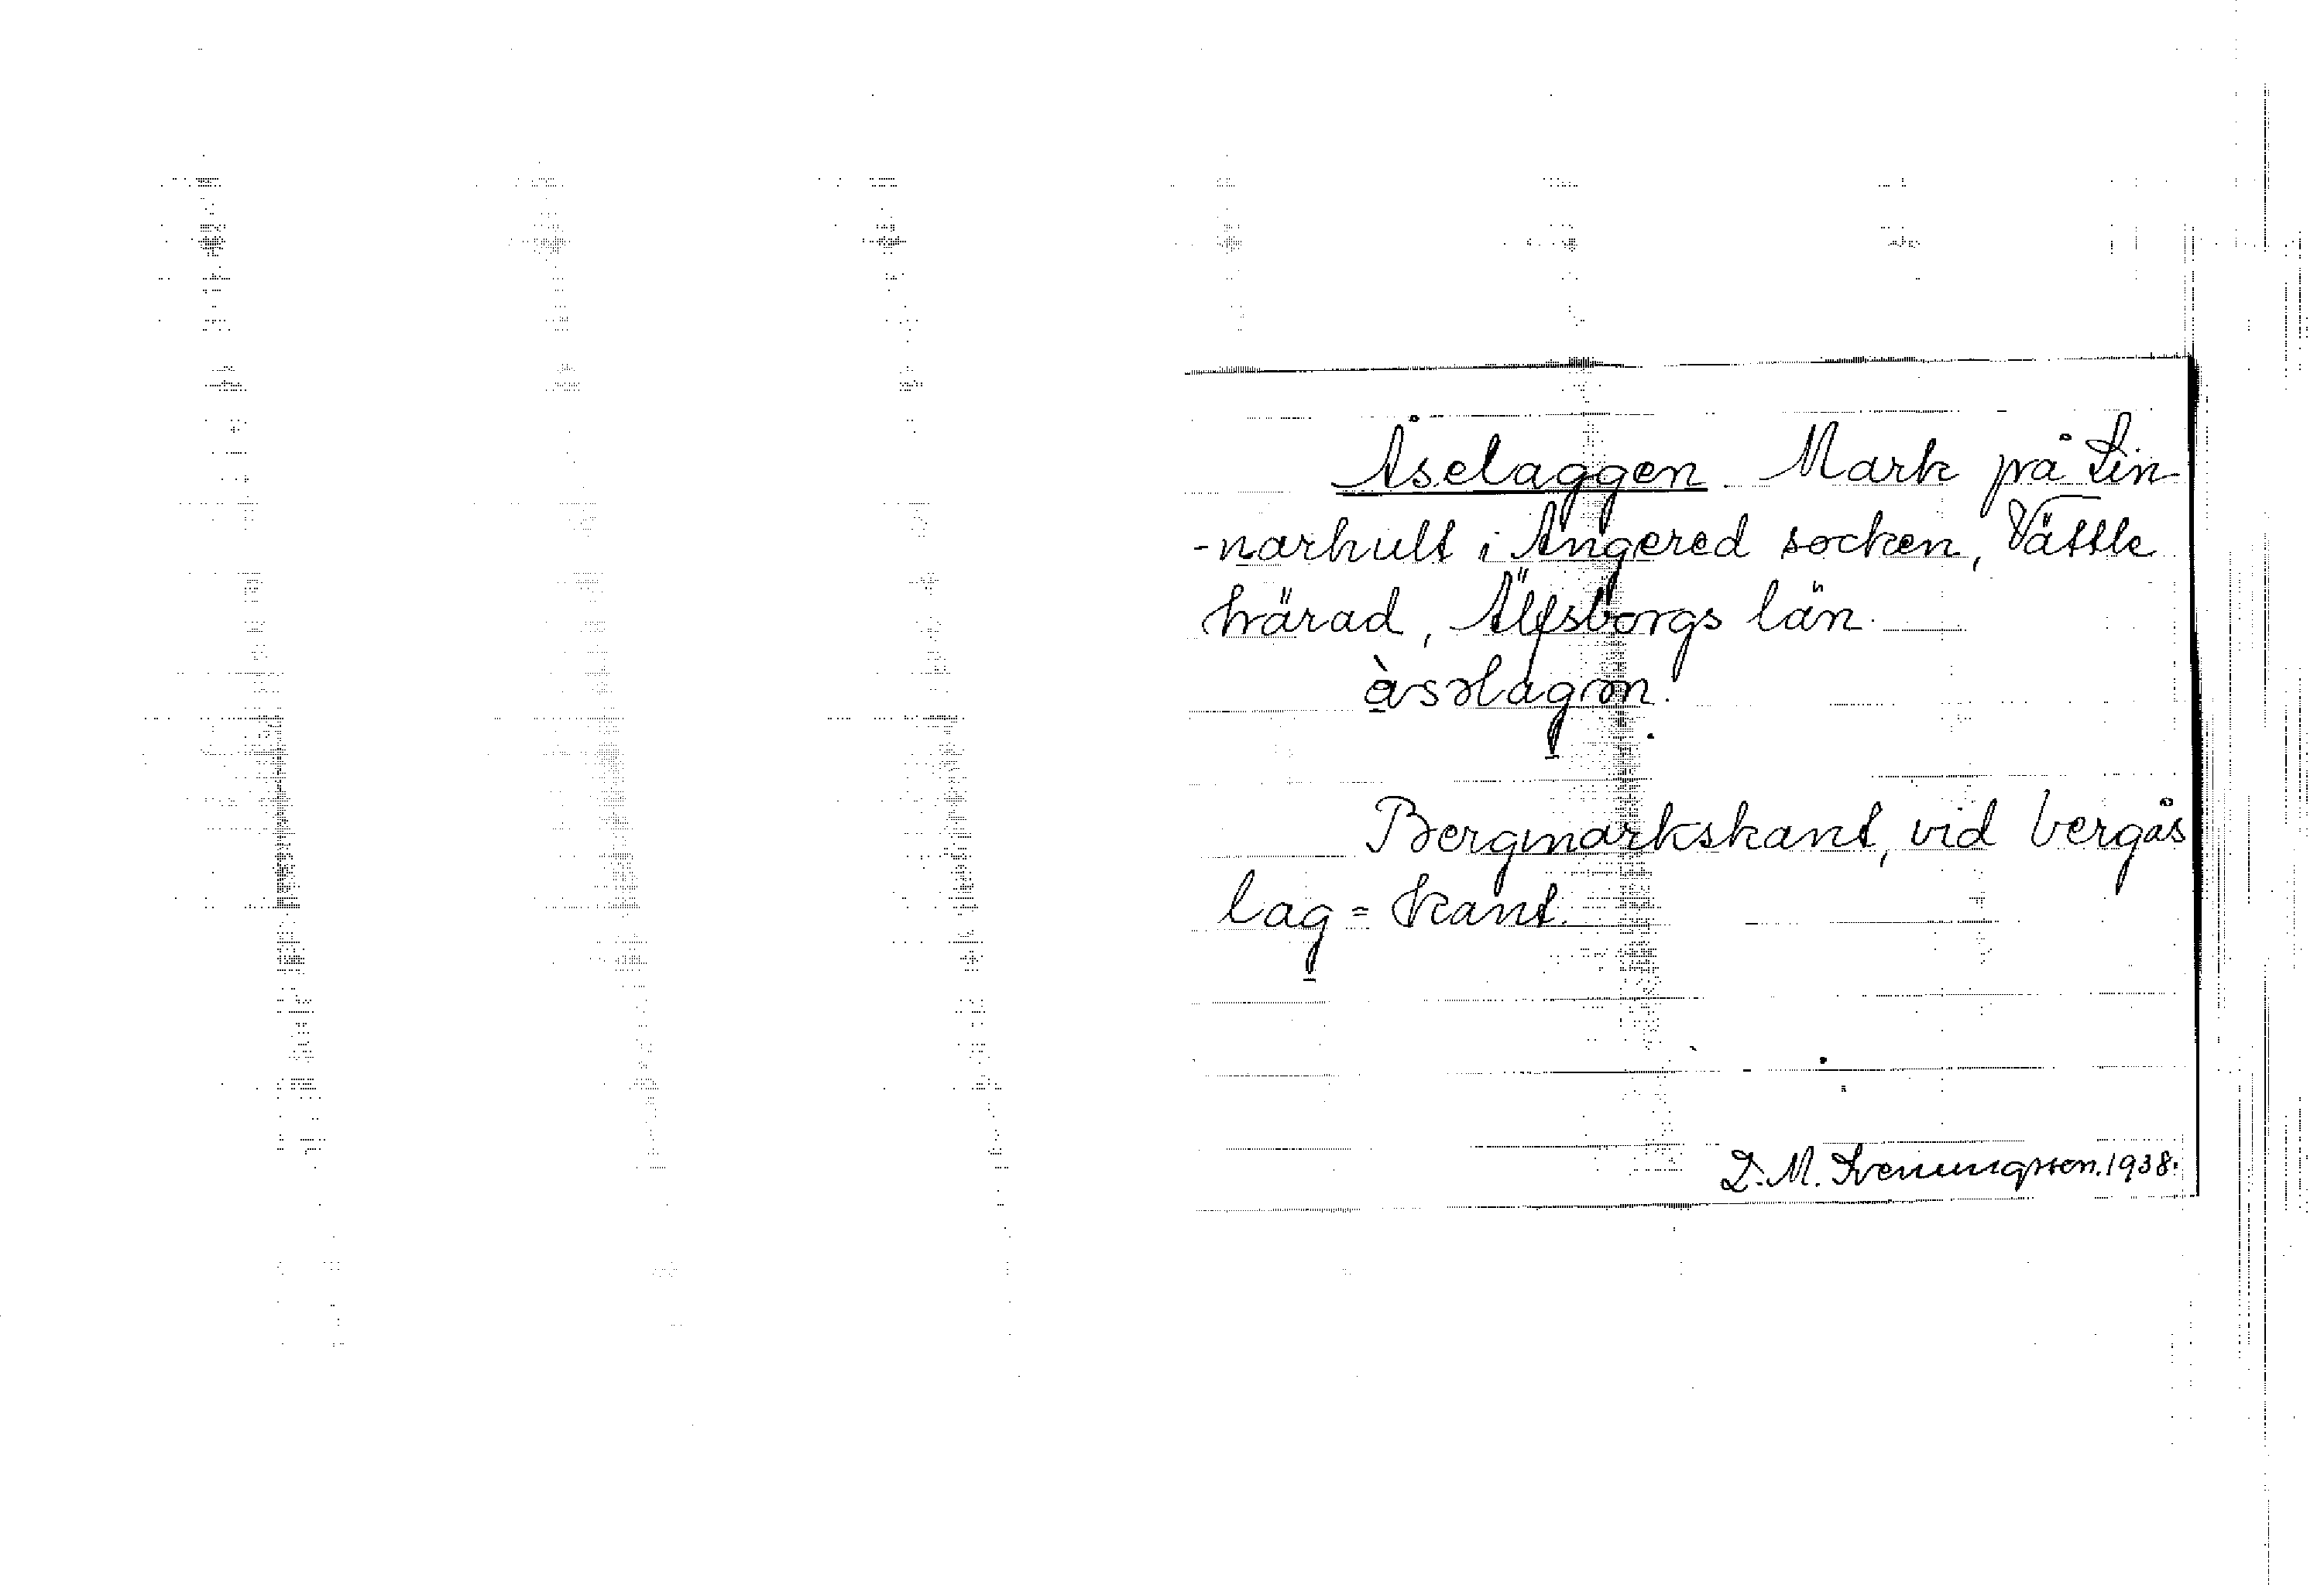 Åselaggen. Mark på Lin-
-narhult i Angered socken, Vättle
härad, Älfsborgs län.
åsəlagən.
Bergmarkskant, vid bergås
lag = kant.
D. M. Svenungsson. 1938.